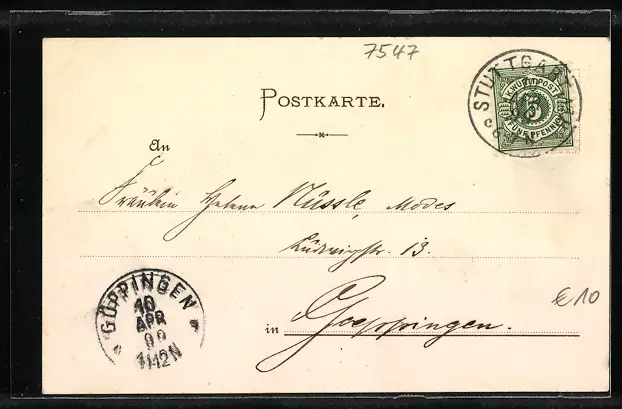 7547
STUTTGART
K.WÜRTT.POST
5
FÜNF PFENNIG
POSTKARTE.
An
Fräulein Helene Nüssle, Modes
Ludwigstr. 13.
GÖPPINGEN
10
APR
99
in Goeppingen.
€10